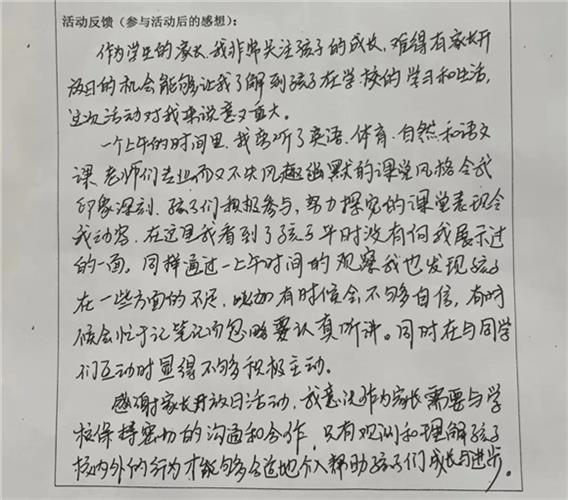 活动反馈（参与活动后的感想）：
作为学生的家长，我非常关注孩子的成长，难得有家长开
放日的机会能够让我了解到孩子在学校的学习和生活，
这次活动对我来说意义重大。
一个上午的时间里，我旁听了英语、体育、自然和语文
课，老师们专业而又不失风趣幽默的课堂风格令我
印象深刻，孩子们积极参与，努力探究的课堂表现令
我动容，在这里我看到了孩子平时没有向我展示过
的一面。同样通过一上午时间的观察我也发现孩子
在一些方面的不足，比如有时候会不够自信，有时
候会忙于记笔记而忽略要认真听讲。同时在与同学
们互动时显得不够积极主动。
感谢家长开放日活动，我意识作为家长需要与学
校保持密切的沟通和合作，只有观测和理解孩子
校内外的行为才能够多合适地介入帮助孩子们成长与进步。